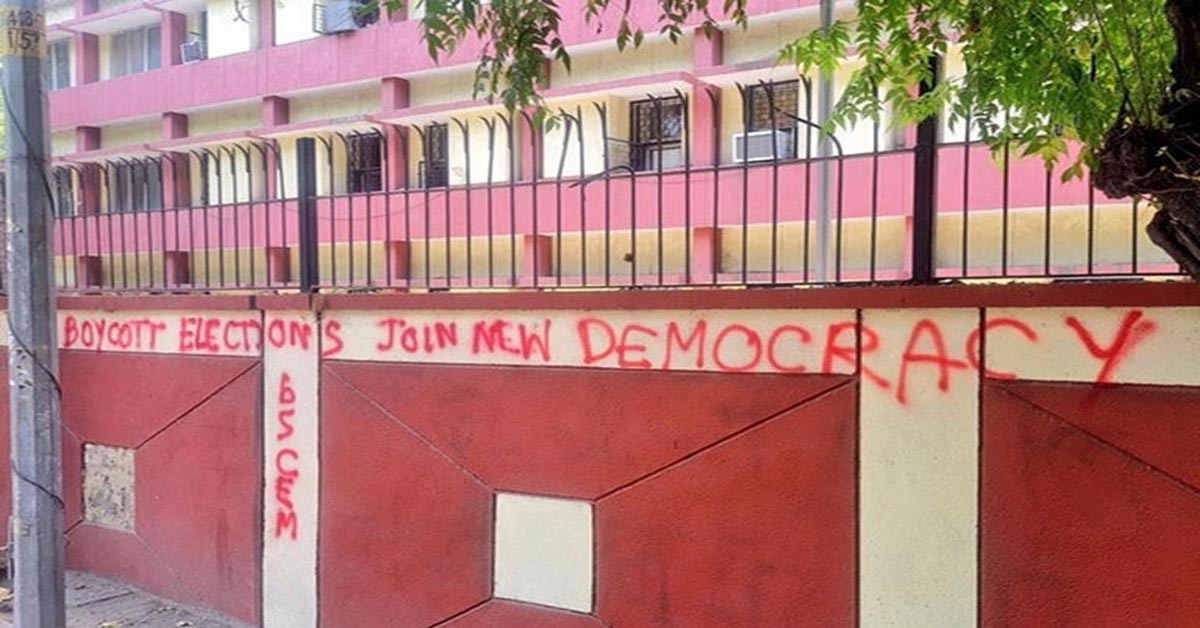 BOYCOTT ELECTIONS JOIN NEW DEMOCRACY
BSCEM